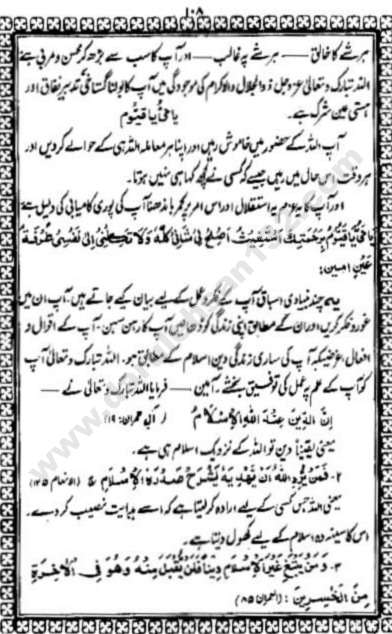 ۱۰۸
ہر شئے کا خالق —— ہر شئے پہ غالب —— اور آپ کا سب سے بڑھ کر محسن و مربی ہے
اللہ تبارک و تعالیٰ عزوجل ذوالجلال والاکرام کی موجودگی میں آپ کا بولنا گستاخی تدبیر نفاق اور
ہستی عین شرک ہے۔ یَا حَیُّ یَا قَیُّوم
آپ اللہ کے حضور میں خاموش رہیں اور اپنا ہر معاملہ اللہ ہی کے حوالے کر دیں اور
ہر وقت اس حال میں رہیں جیسے کہ کسی نے کچھ کہا ہی نہیں ہوتا۔
اور آپ کا یہ عزم یہ استقلال اور اس امر پر کمر باندھنا آپ کی پوری کامیابی کی دلیل ہے
یَا حَیُّ یَا قَیُّومُ بِرَحْمَتِكَ اَسْتَغِیْثُ اَصْلِحْ لِیْ شَانِیْ كُلَّهٗ وَلَا تَكِلْنِیْ اِلٰی نَفْسِیْ طَرْفَةَ
عَیْنٍ اٰمین:
یہ چند بنیادی اسباق آپ کے فکر و عمل کے لیے بیان کیے جاتے ہیں۔ آپ ان میں
غور و فکر کریں اور ان کے مطابق اپنی زندگی کو ڈھالیں آپ کا رہن سہن۔ آپ کے اقوال و
افعال، غرضیکہ آپ کی ساری زندگی دین اسلام کے مطابق ہو۔ اللہ تبارک و تعالیٰ آپ
کو آپ کے علم پر عمل کی توفیق بخشے۔ آمین —— فرمایا اللہ تبارک و تعالیٰ نے ——
اِنَّ الدِّیْنَ عِنْدَ اللّٰهِ الْاِسْلَامُ (آل عمران: ۱۹)
یعنی یقیناً دین تو اللہ کے نزدیک اسلام ہی ہے۔
۲۔ فَمَنْ یُّرِدِ اللّٰهُ اَنْ یَّهْدِیَهٗ یَشْرَحْ صَدْرَهٗ لِلْاِسْلَامِ ج (الانعام ۱۲۵)
یعنی اللہ جس کسی کے لیے ارادہ کر لیتا ہے کہ اسے ہدایت نصیب کر دے۔
اس کا سینہ وہ اسلام کے لیے کھول دیتا ہے۔
۳۔ وَ مَنْ یَّبْتَغِ غَیْرَ الْاِسْلَامِ دِیْنًا فَلَنْ یُّقْبَلَ مِنْهُ وَهُوَ فِی الْاٰخِرَةِ
مِنَ الْخٰسِرِیْنَ: (العمران ۸۵)